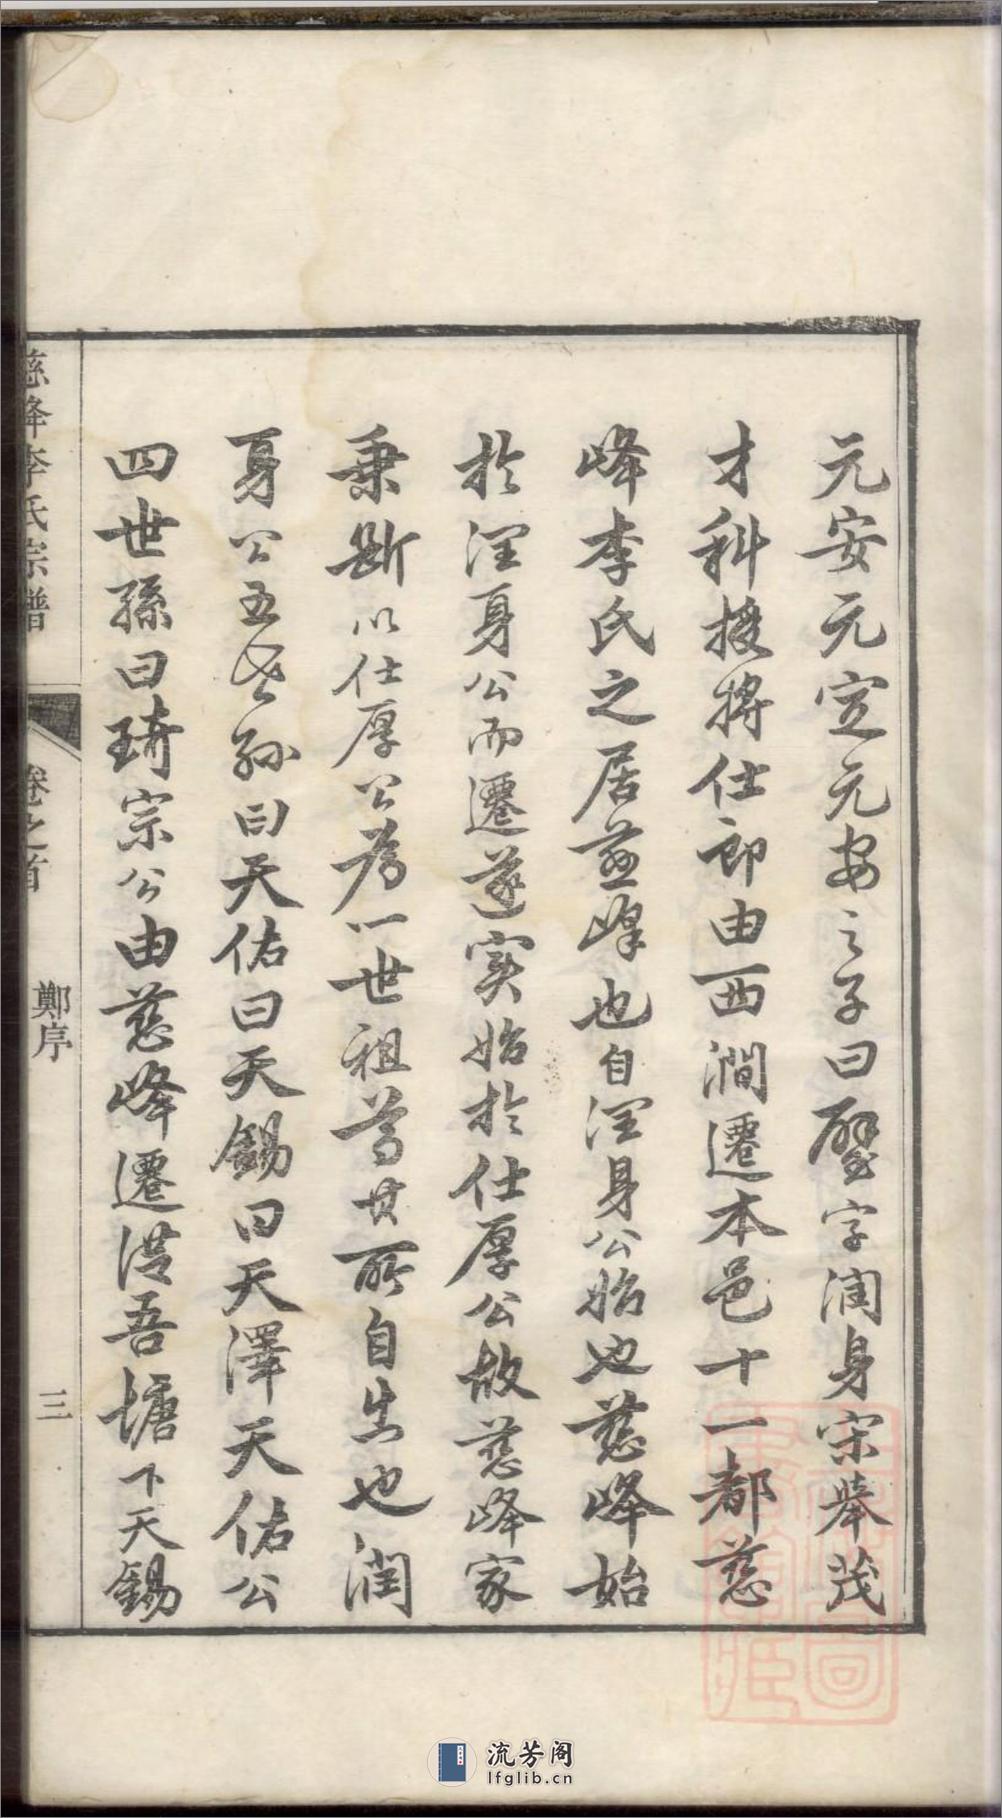 元安元定元安之子曰壁字潤身宋舉茂
才科授將仕郎由西澗遷本邑十一都慈
峰李氏之居慈峰也自潤身公始也慈峰始
於潤身公而遷遂實始於仕厚公故慈峰家
乘斷以仕厚公為一世祖尊其所自生也潤
身公五世孫曰天佑曰天錫曰天澤天佑公
四世孫曰琦宗公由慈峰遷洪吾塘下天錫
慈峰李氏宗譜
卷之首
鄭序
三
流芳阁
lfglib.cn